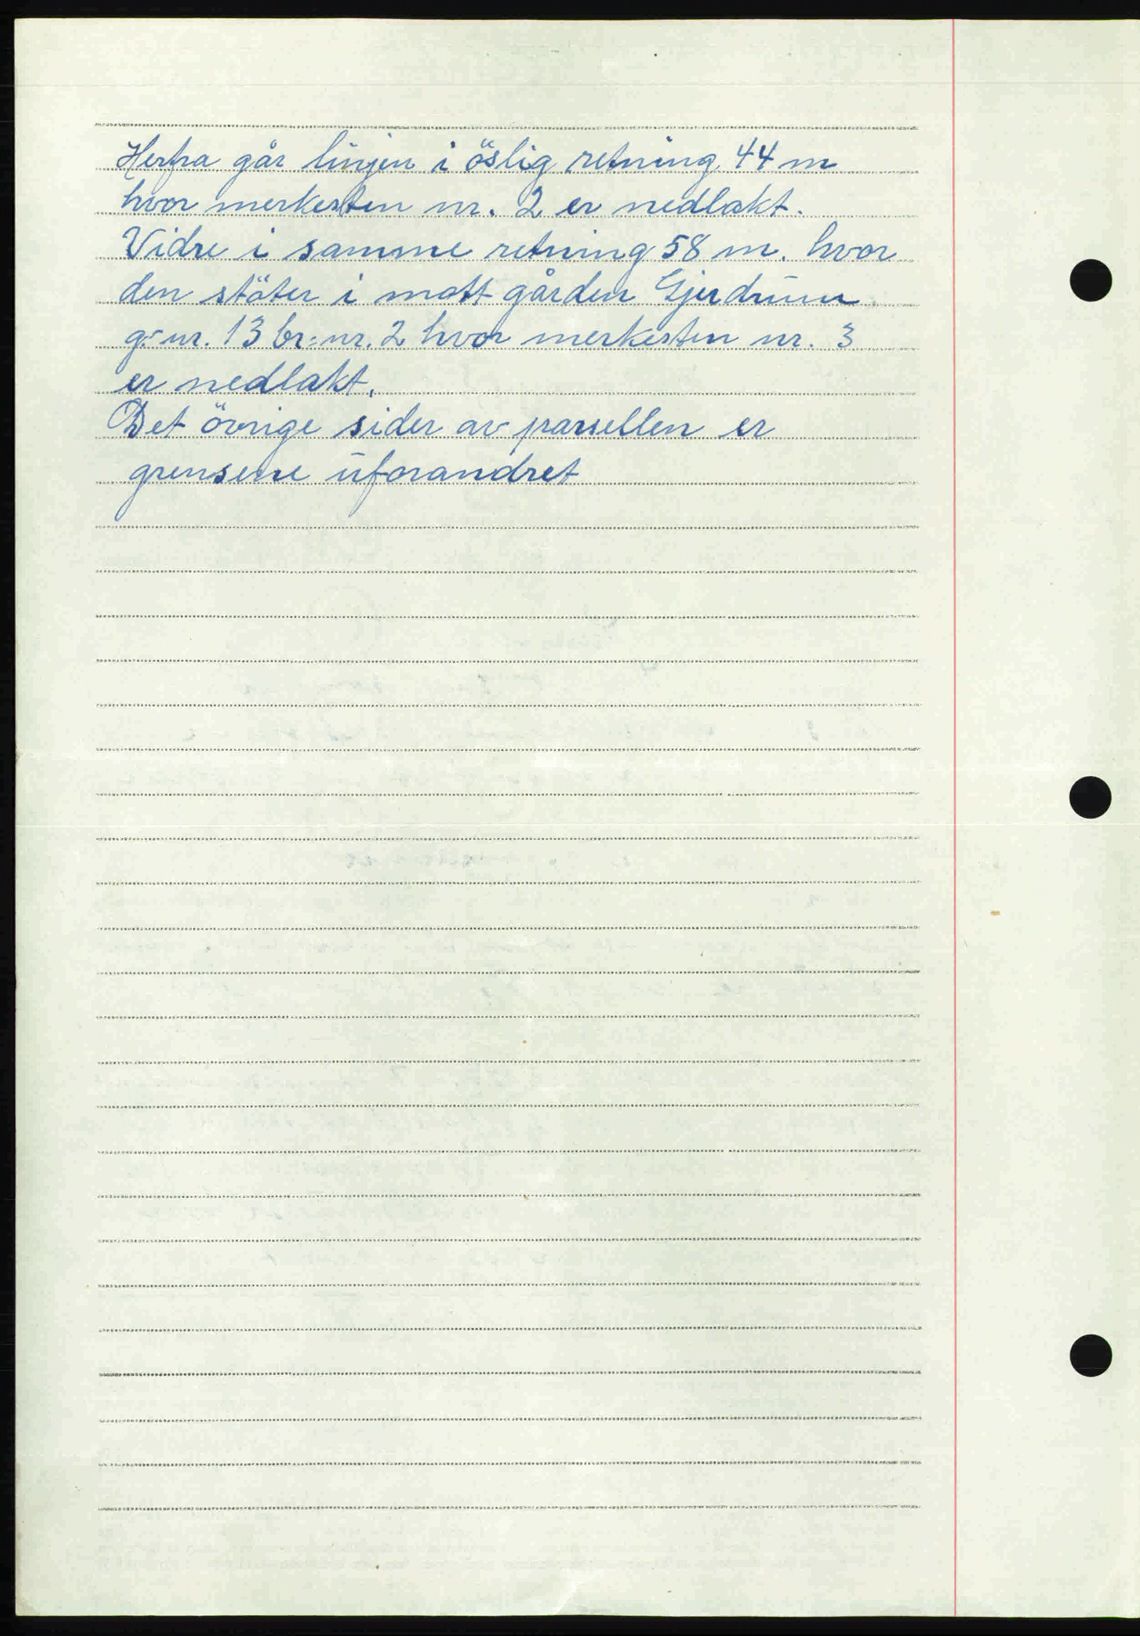 Herfra går linjen i öslig retning 44 m
hvor merkesten nr. 2 er nedlakt.
Vidre i samme retning 58 m. hvor
den stöter i mott gården Gjerdrum
g:nr. 13 br:nr. 2 hvor merkesten nr. 3
er nedlakt.
Det övrige sider av parsellen er
grensene uforandret